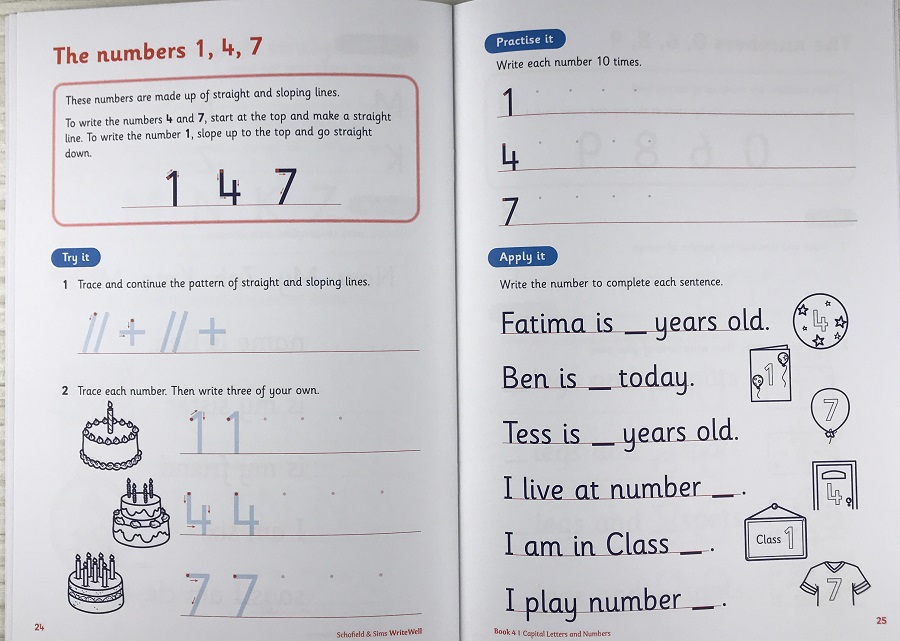 The numbers 1, 4, 7
These numbers are made up of straight and sloping lines.
To write the numbers 4 and 7, start at the top and make a straight
line. To write the number 1, slope up to the top and go straight
down.
1 4 7
Try it
1 Trace and continue the pattern of straight and sloping lines.
2 Trace each number. Then write three of your own.
1 1
4 4
7 7
24
Schofield & Sims WriteWell
Practise it
Write each number 10 times.
1
4
7
Apply it
Write the number to complete each sentence.
Fatima is _ years old.
4
Ben is _ today.
1
Tess is _ years old.
7
I live at number _ .
4
I am in Class _ .
Class 1
I play number _ .
7
Book 4 | Capital Letters and Numbers
25